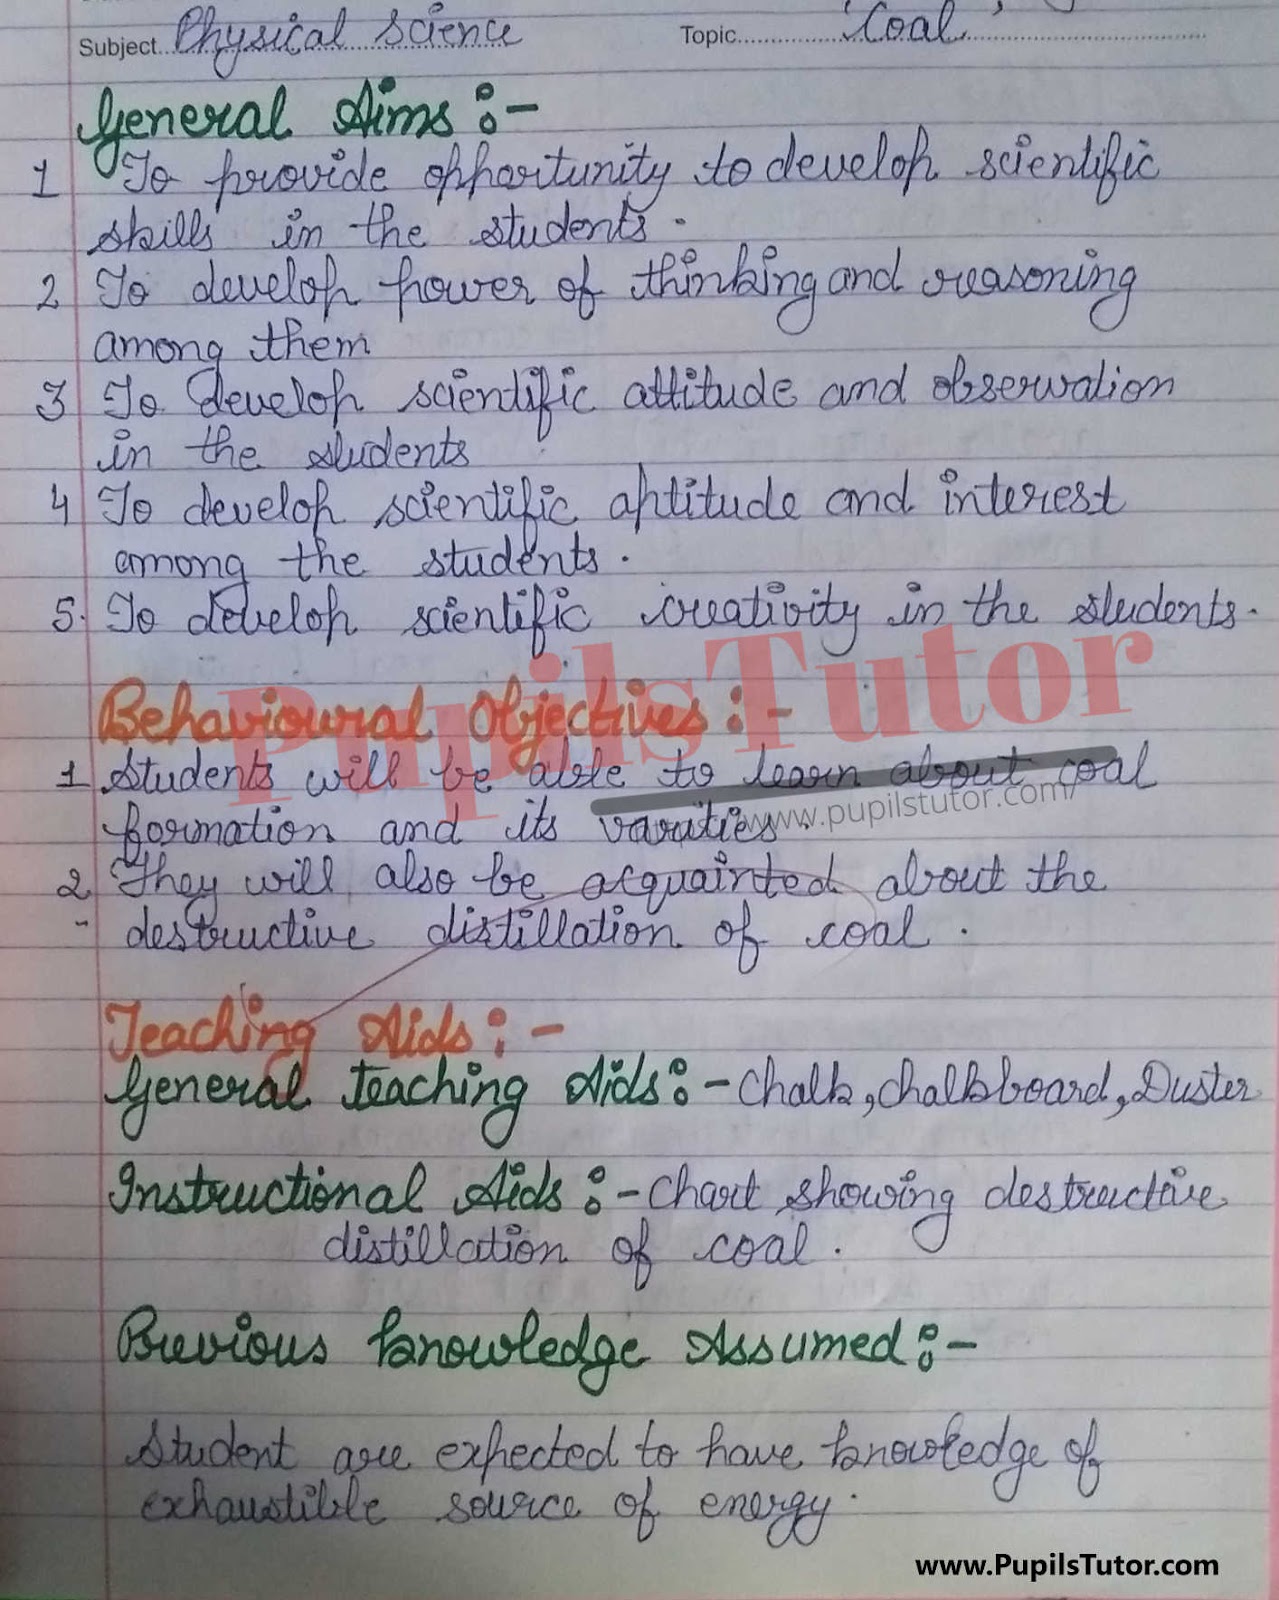 Subject Physical Science Topic Coal
General Aims :-
1 To provide opportunity to develop scientific
skills in the students.
2 To develop power of thinking and reasoning
among them
3 To develop scientific attitude and observation
in the students
4 To develop scientific aptitude and interest
among the students.
5. To develop scientific creativity in the students.
PupilsTutor
Behavioural Objectives :-
1 Students will be able to learn about coal
www.pupilstutor.com/
formation and its varities.
2 They will also be acquainted about the
destructive distillation of coal.
Teaching Aids :-
General Teaching Aids :- Chalk, Chalkboard, Duster
Instructional Aids :- Chart showing destructive
distillation of coal.
Previous knowledge Assumed :-
Student are expected to have knowledge of
exhaustible source of energy.
www.PupilsTutor.com